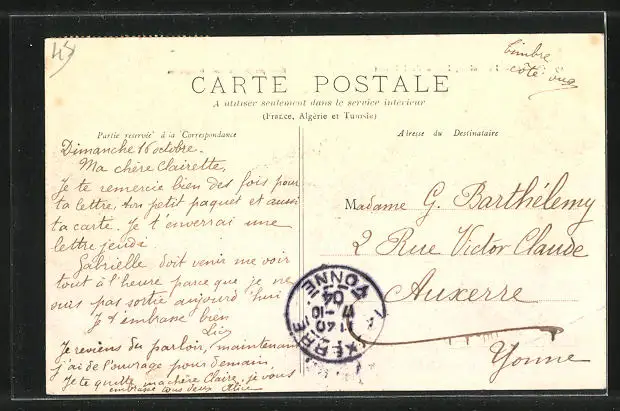 45
Timbre
côté vue
CARTE POSTALE
A utiliser seulement dans le service intérieur
(France, Algérie et Tunisie)
Partie réservée à la Correspondance
Adresse du Destinataire
Dimanche 16 octobre.
Ma chère Clairette,
Je te remercie bien des fois pour
ta lettre, ton petit paquet et aussi
ta carte. Je t'enverrai une
lettre jeudi
Gabrielle doit venir me voir
tout à l'heure parce que je ne
suis pas sortie aujourd'hui
Je t'embrasse bien
Je reviens du parloir, maintenant
j'ai de l'ouvrage pour demain
Je te quitte ma chère Claire, je vous
embrasse tous deux Alice
Madame G. Barthélemy
2 Rue Victor Claude
Auxerre
Yonne
AUXERRE
11 40
17-10
04
YONNE